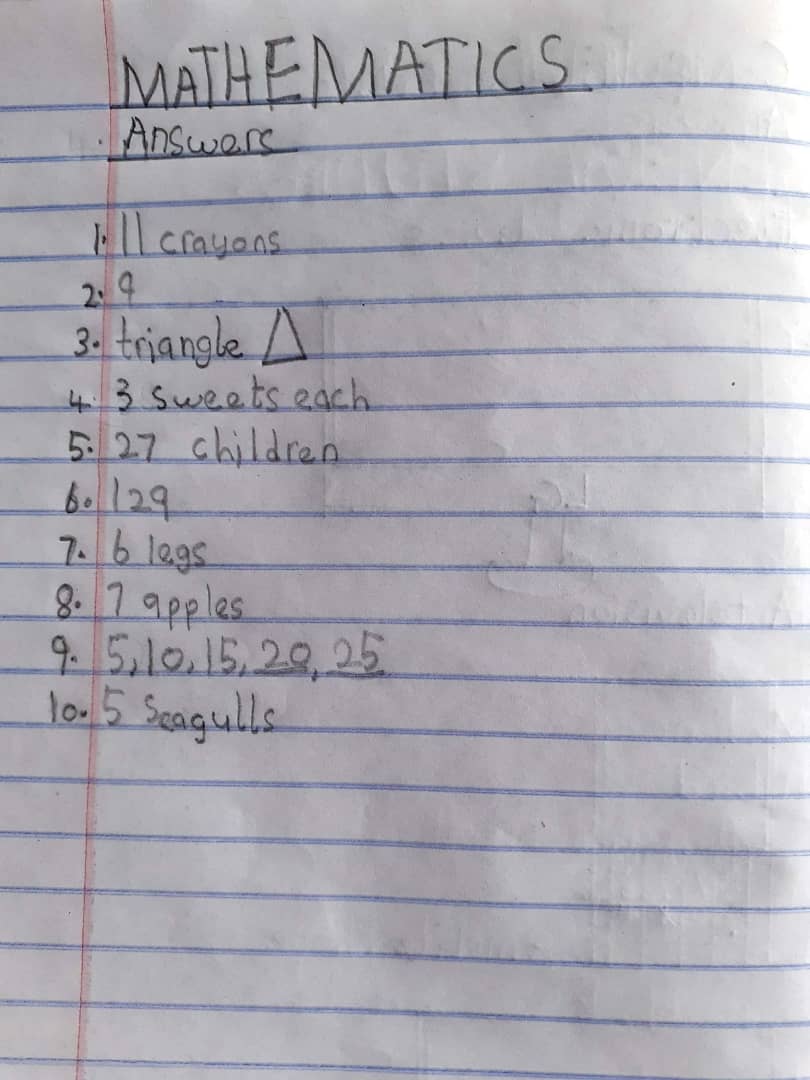 MATHEMATICS
Answers
1. 11 crayons
2. 9
3. triangle △
4. 3 sweets each
5. 27 children
6. 129
7. 6 legs
8. 7 apples
9. 5, 10, 15, 20, 25
10. 5 Seagulls